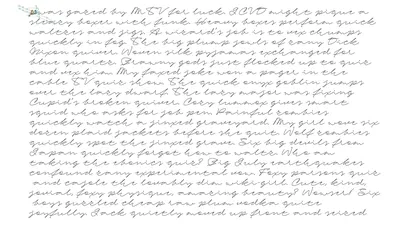 was gazed by MTV for luck. A CVD might pique a
sleazy boxer with funk. Heavy boxes perform quick
waltzes and jigs. A wizard's job is to vex chumps
quickly in fog. The big plump jowls of zany Dick
Nixon quiver. Woven silk pyjamas exchanged for
blue quartz. Brawny gods just flocked to quiz
and vex him. My faxed joke won a pager in the
cable TV quiz show. The quick onyx goblin jumps
over the lazy dwarf. The lazy major was fixing
Cupid's broken quiver. Cozy lummox gives smart
squid who asks for job pen. Painful zombies
quickly watch a jinxed graveyard. My girl wove six
dozen plaid jackets before she quit. Wolf zombies
quickly spot the jinxed grave. Six big devils from
Japan quickly forgot how to waltz. Who am
taking the ebonics quiz? Big July earthquakes
confound zany experimental vow. Foxy parsons quiz
and cajole the lovably dim wiki girl. Cute, kind,
jovial, foxy physique, amazing beauty? Wowser! Six
boys guzzled cheap raw plum vodka quite
joyfully. Jack quietly moved up front and seized